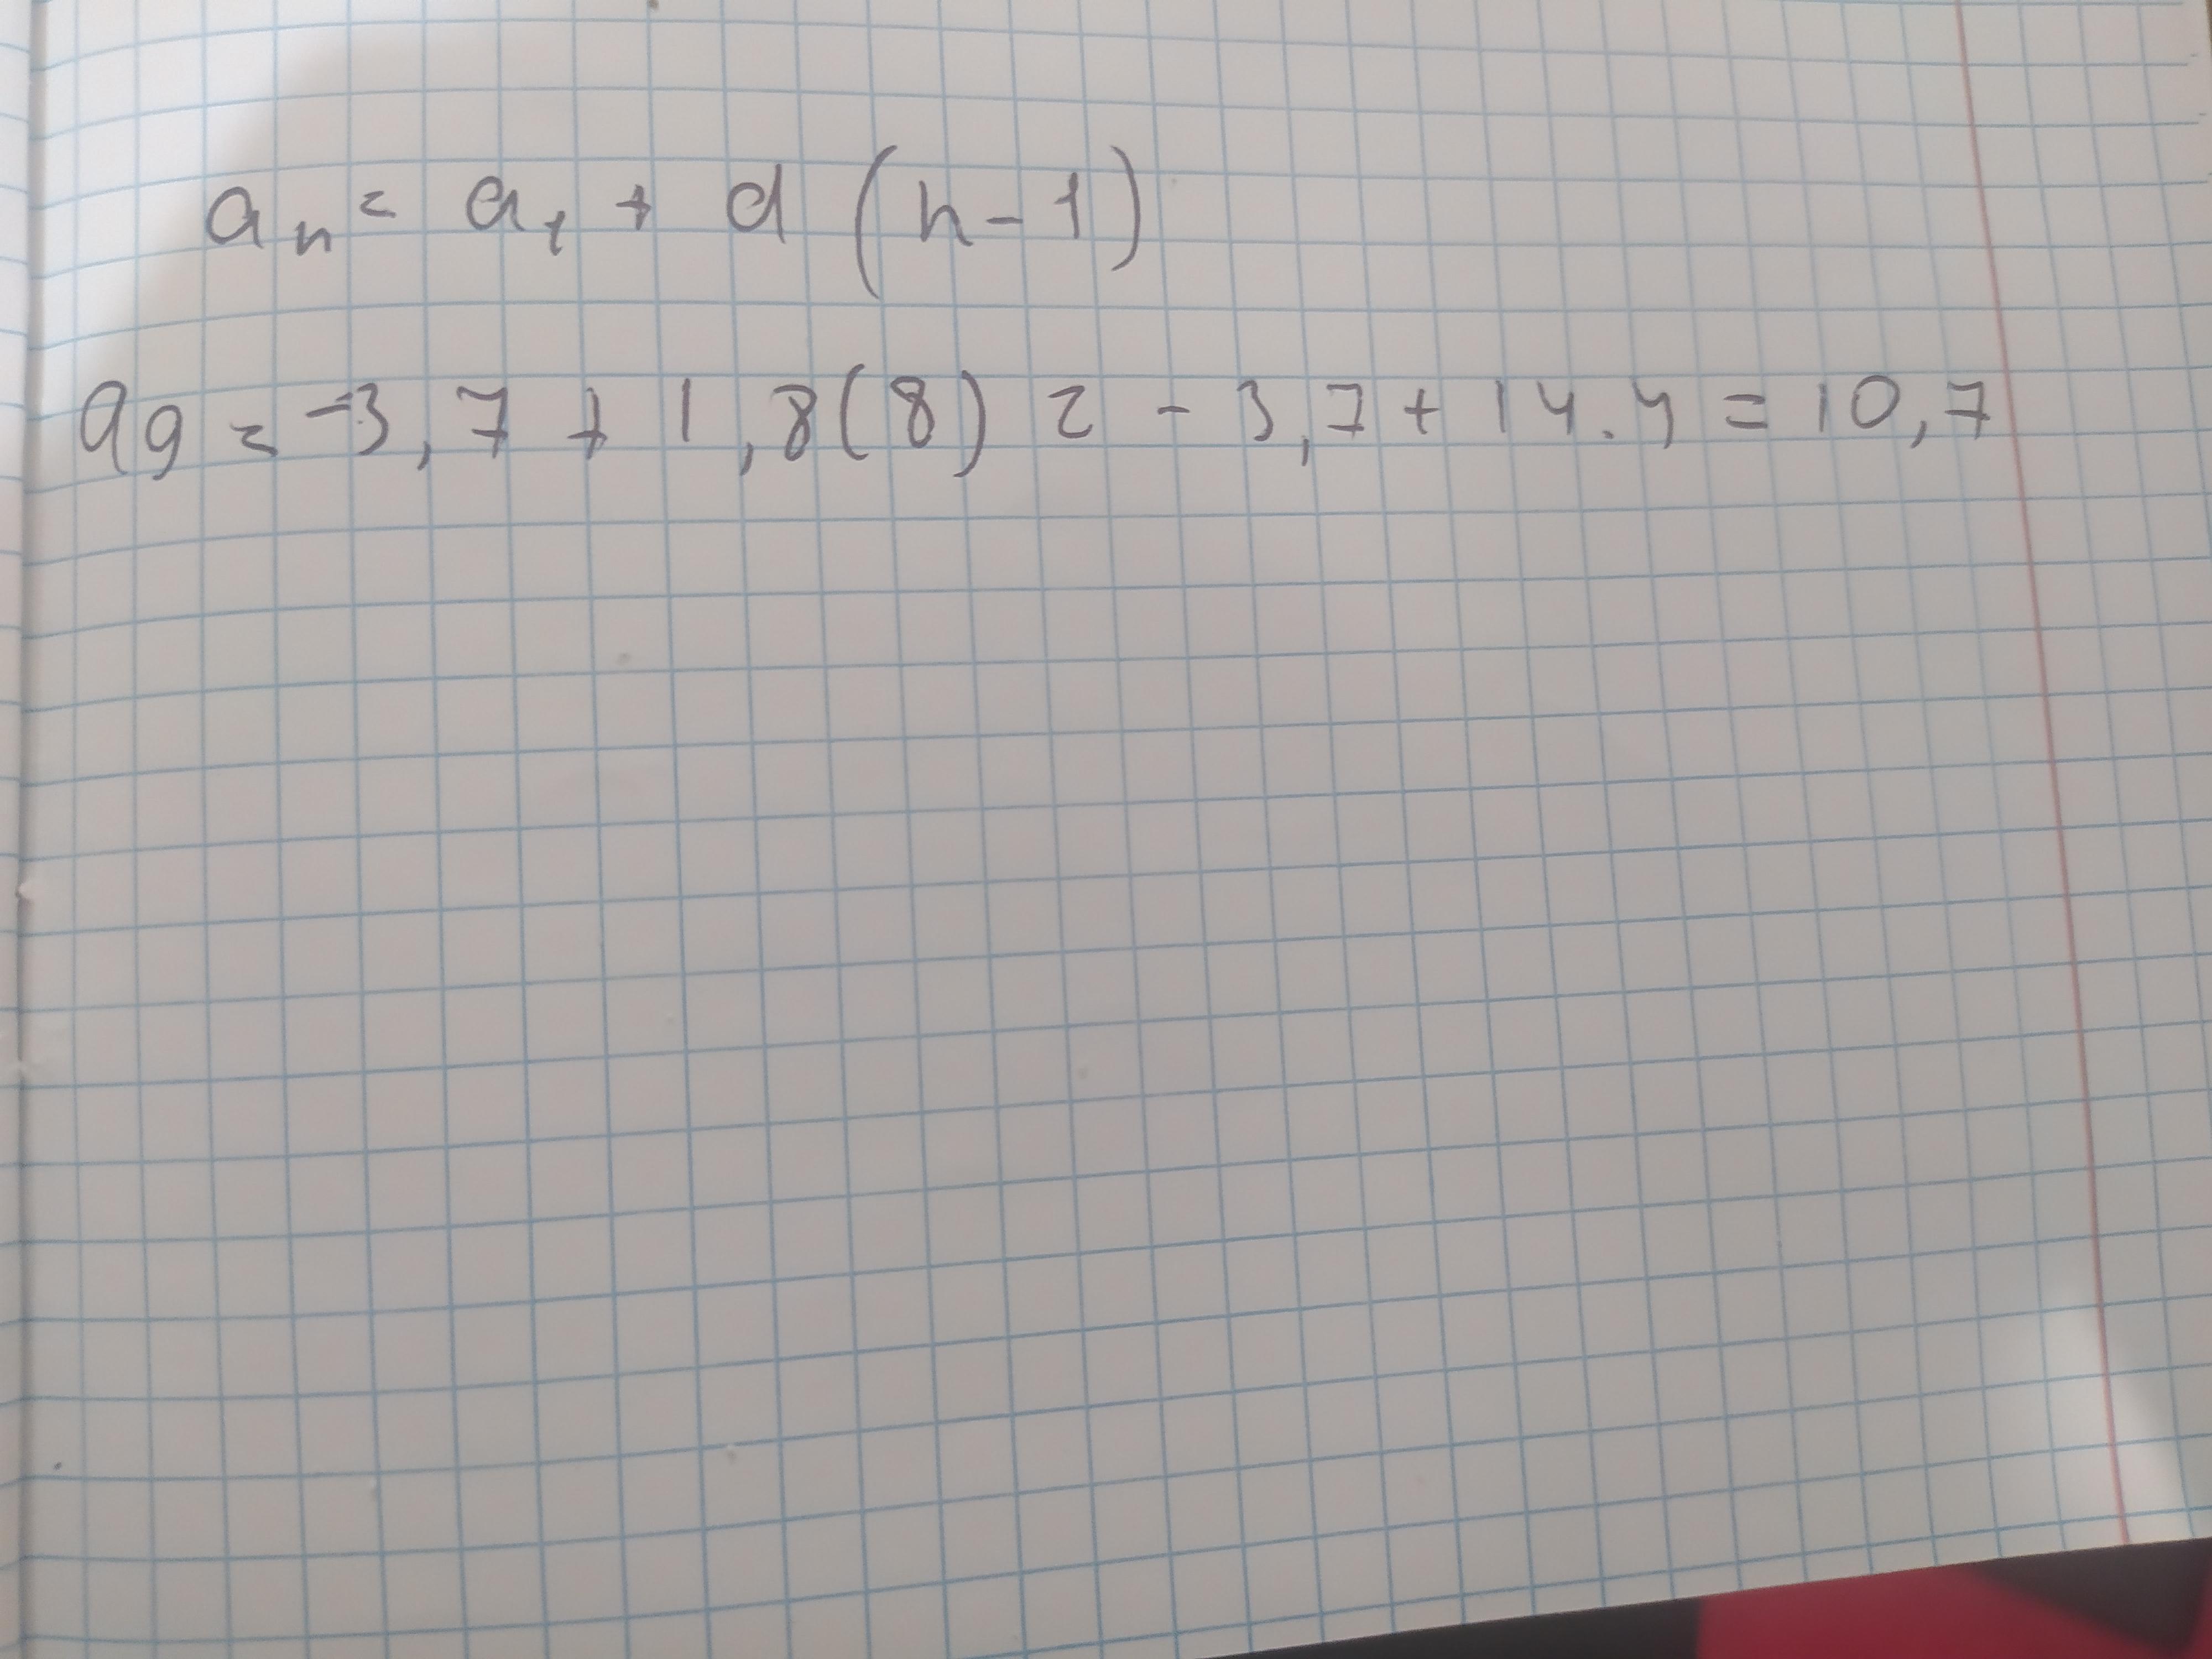 aₙ = a₁ + d (n - 1)
a₉ = -3,7 + 1,8(8) = -3,7 + 14.4 = 10,7